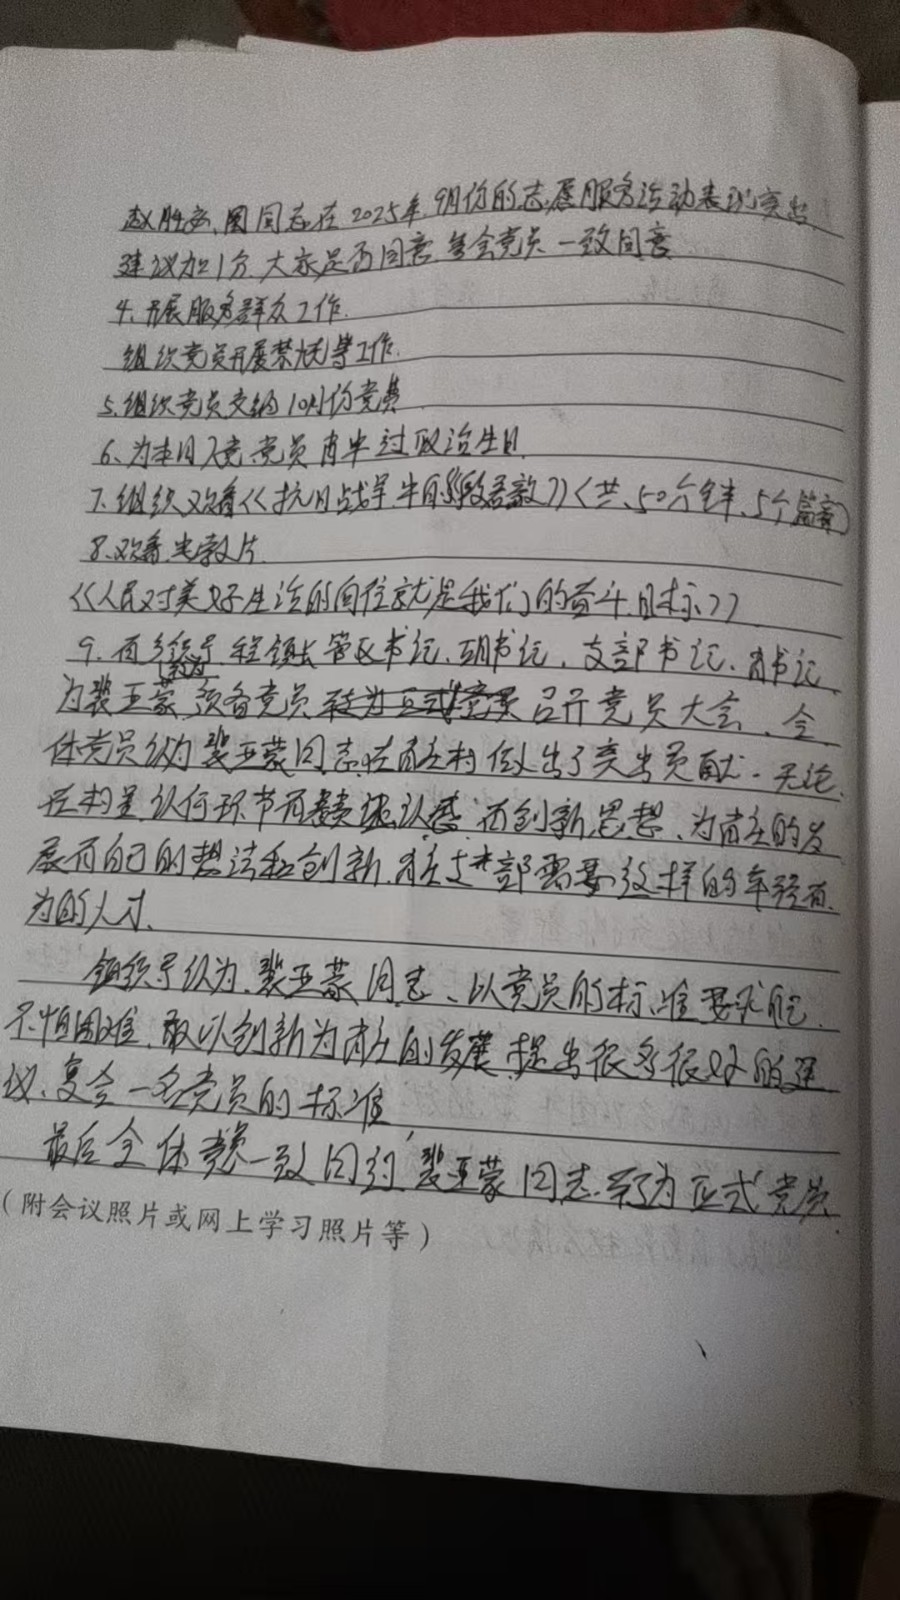 同志在2025年9月份的志愿服务活动表现突出
建议加1分 大家是否同意 与会党员一致同意
4、开展服务群众工作.
组织党员开展禁火等工作.
5、组织党员交纳10月份党费
6、为本月入党党员 过政治生日
7、组织观看《抗日战争 》(共、50分钟、5个篇章)
8、观看电教片
《人民对美好生活的向往就是我们的奋斗目标》
9、由 程镇长 管区书记、胡书记、支部书记、肖书记
为裴亚蒙 预备党员转为正式党员召开党员大会、全
体党员认为裴亚蒙同志在 村做出了突出贡献. 无论
在村里 任何环节 而创新思想、为 的发
展有自己的想法和创新 支部需要这样的年轻有
为的人才.
镇领导认为、裴亚蒙同志、以党员的标准要求自己
不怕困难 敢以创新为 的发展 提出很多很好的建
议、复合一名党员的标准
最后全体党员一致同意 裴亚蒙同志 转为正式党员.
(附会议照片或网上学习照片等)